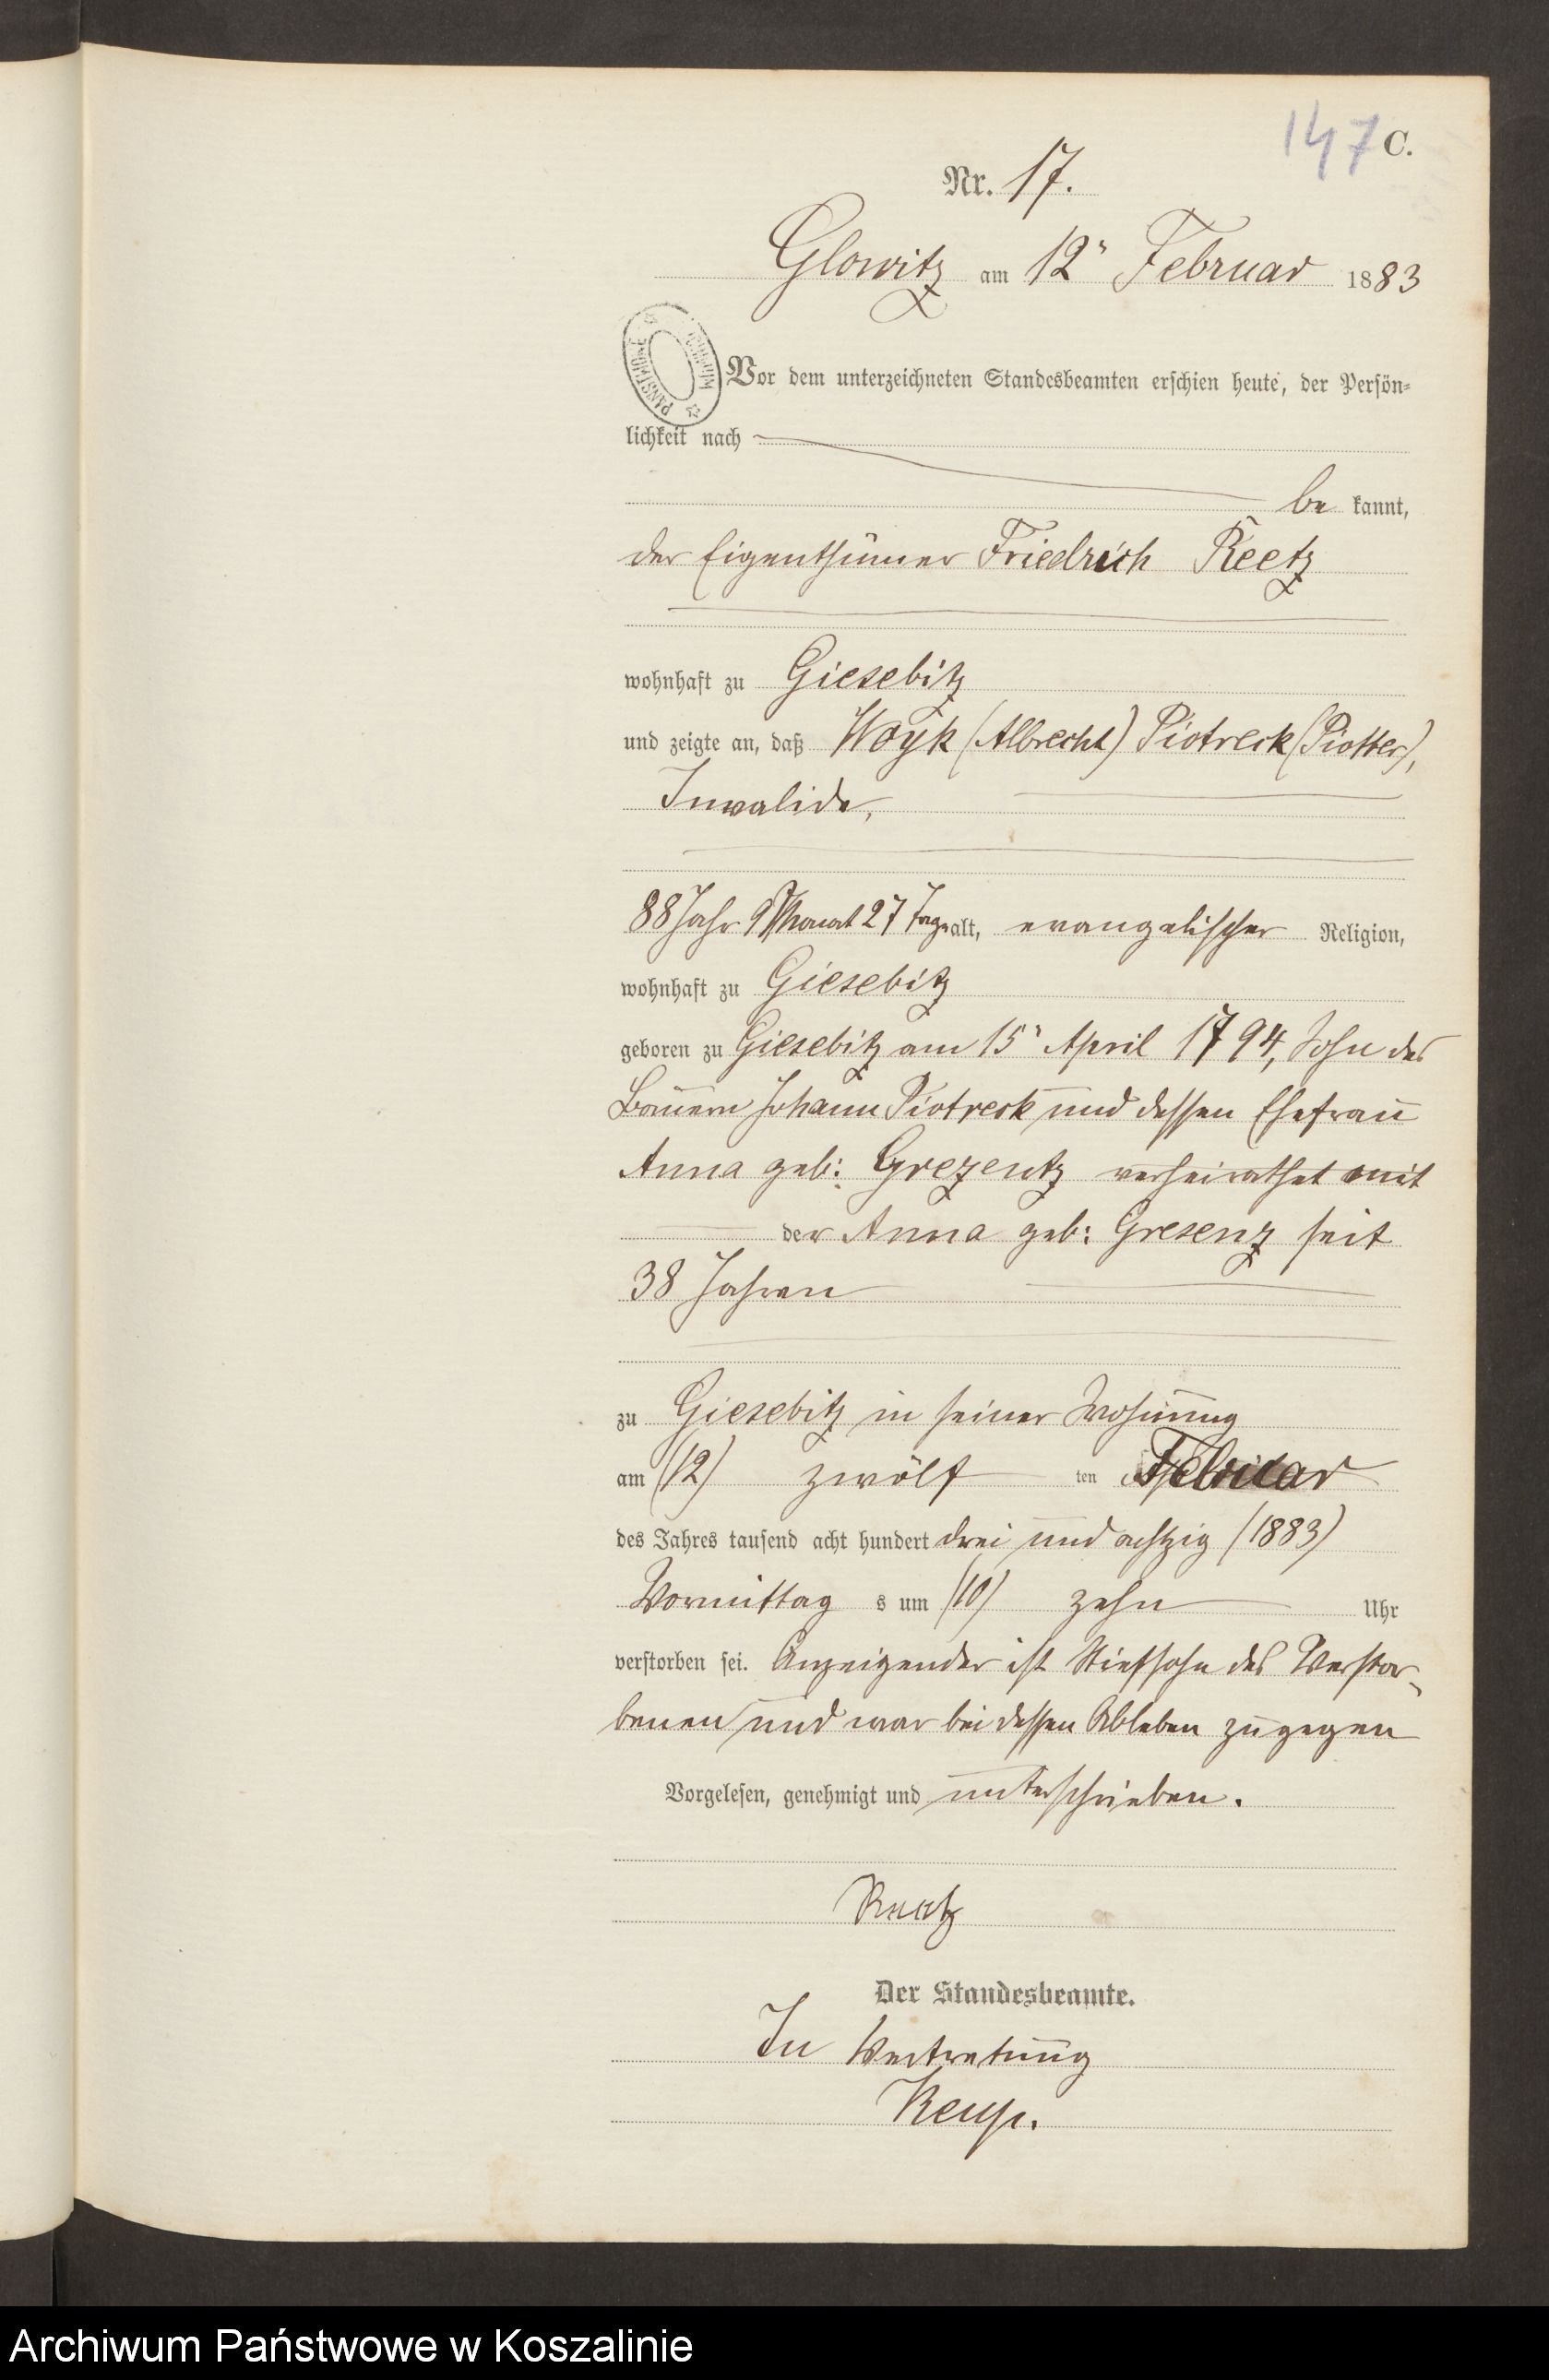 147 C.
Nr. 17.
Glowitz am 12" Februar 1883
Vor dem unterzeichneten Standesbeamten erschien heute, der Persön-
lichkeit nach
be kannt,
der Eigenthümer Friedrich Reetz
wohnhaft zu Giesebitz
und zeigte an, daß Woyk (Albrecht) Piotreck (Piotter),
Invalide,
88 Jahr 9 Monat 27 Tage alt, evangelischer Religion,
wohnhaft zu Giesebitz
geboren zu Giesebitz am 15" April 1794, Sohn des
Bauern Johann Piotreck und dessen Ehefrau
Anna geb: Grezentz verheirathet mit
der Anna geb: Gresenz seit
38 Jahren
zu Giesebitz in seiner Wohnung
am (12) zwölf ten Februar
des Jahres tausend acht hundert drei und achtzig (1883)
Vormittag s um (10) zehn Uhr
verstorben sei. Anzeigender ist Stiefsohn des Verstor-
benen und war bei dessen Ableben zugegen
Vorgelesen, genehmigt und unterschrieben.
Reetz
Der Standesbeamte.
In Vertretung
Archiwum Państwowe w Koszalinie